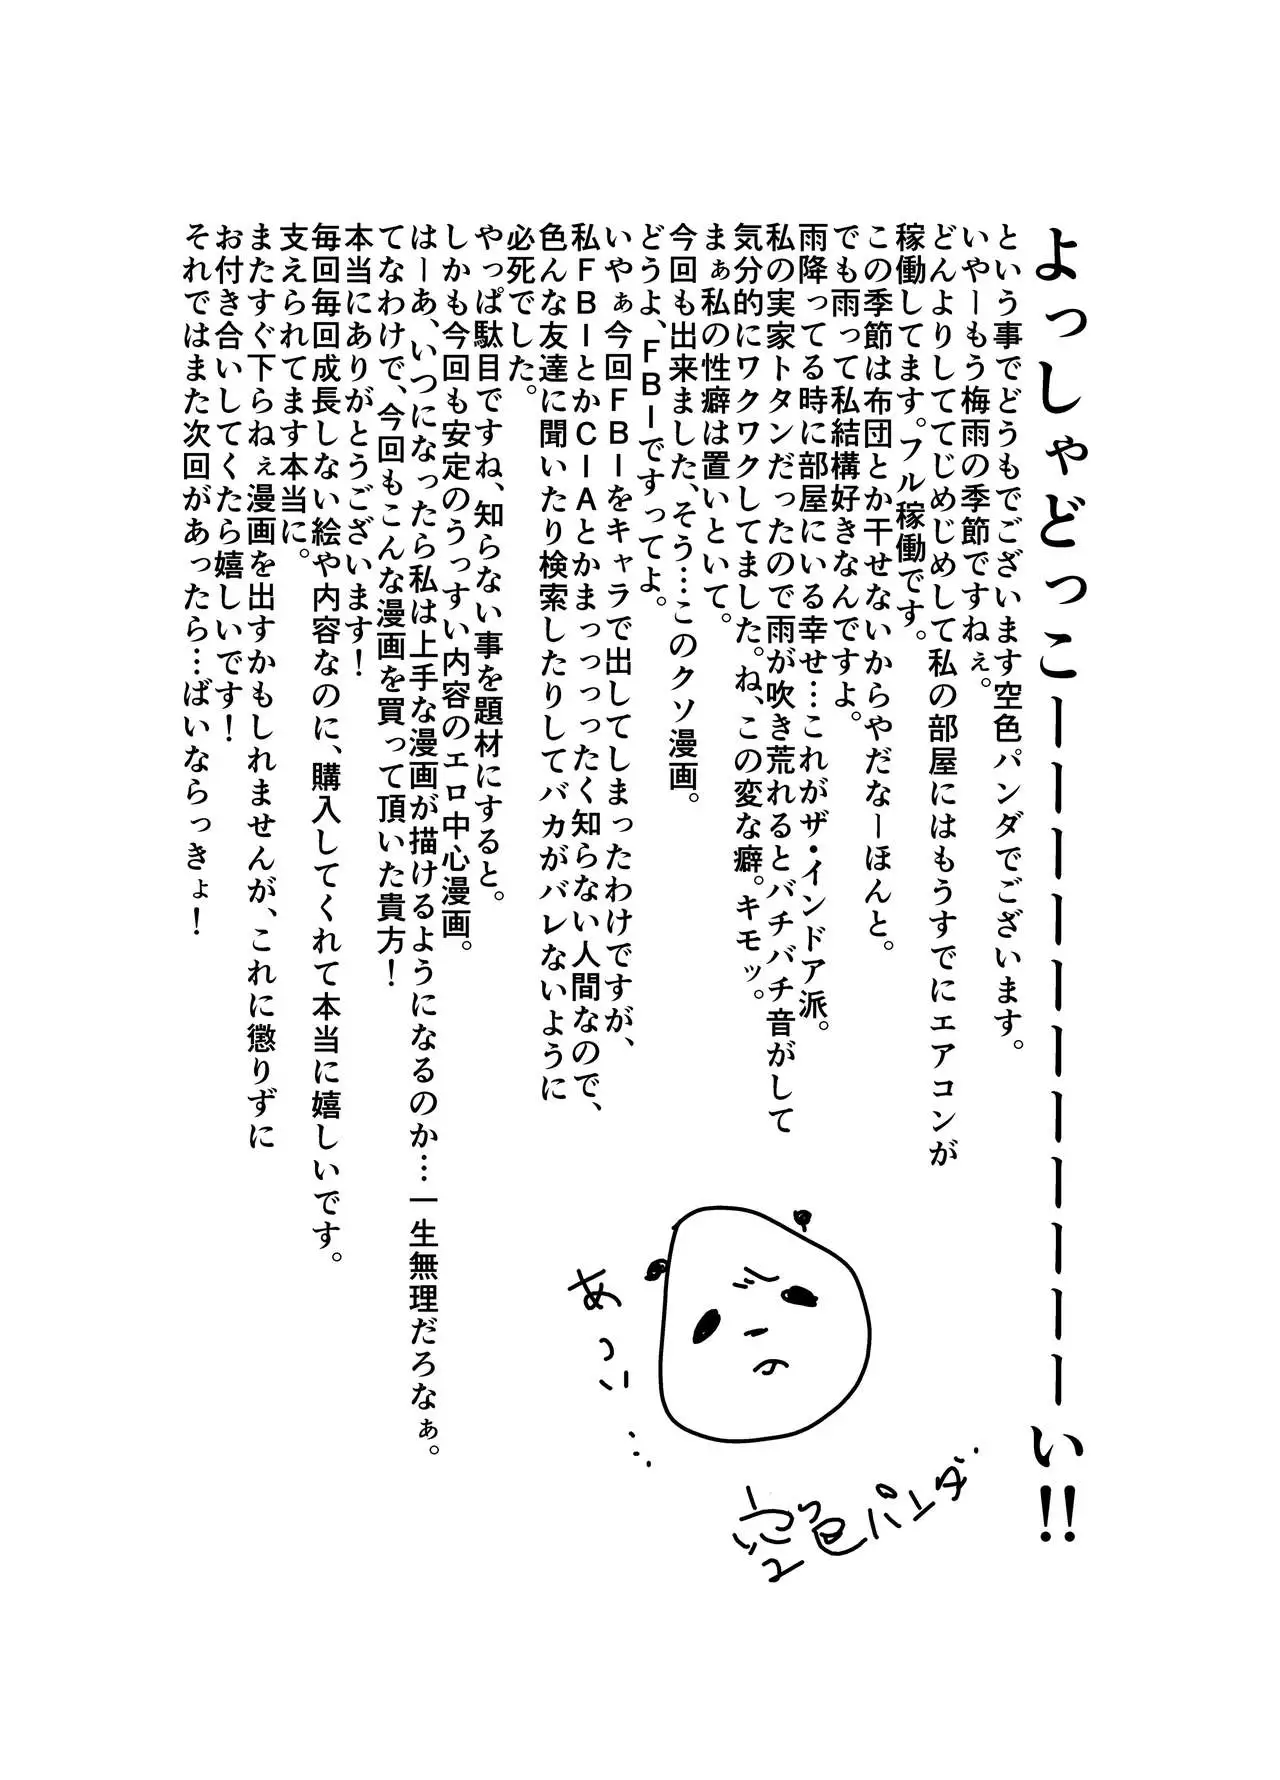 よっしゃどっこーーーーーーーーーーーい!!
という事でどうもでございます空色パンダでございます。
いやーもう梅雨の季節ですねぇ。
どんよりしてじめじめして私の部屋にはもうすでにエアコンが
稼働してます。フル稼働です。
この季節は布団とか干せないからやだなーほんと。
でも雨って私結構好きなんですよ。
雨降ってる時に部屋にいる幸せ…これがザ・インドア派。
私の実家トタンだったので雨が吹き荒れるとバチバチ音がして
気分的にワクワクしてました。ね、この変な癖。キモッ。
まぁ私の性癖は置いといて。
今回も出来ました、そう…このクソ漫画。
どうよ、FBIですってよ。
いやぁ今回FBIをキャラで出してしまったわけですが、
私FBIとかCIAとかまっっっったく知らない人間なので、
色んな友達に聞いたり検索したりしてバカがバレないように
必死でした。
やっぱ駄目ですね、知らない事を題材にすると。
しかも今回も安定のうっすい内容のエロ中心漫画。
はーあ、いつになったら私は上手な漫画が描けるようになるのか…一生無理だろなぁ。
てなわけで、今回もこんな漫画を買って頂いた貴方!
本当にありがとうございます!
毎回毎回成長しない絵や内容なのに、購入してくれて本当に嬉しいです。
支えられてます本当に。
またすぐ下らねぇ漫画を出すかもしれませんが、これに懲りずに
お付き合いしてくたら嬉しいです!
それではまた次回があったら…ばいならっきょ!
あつい…
空色パンダ